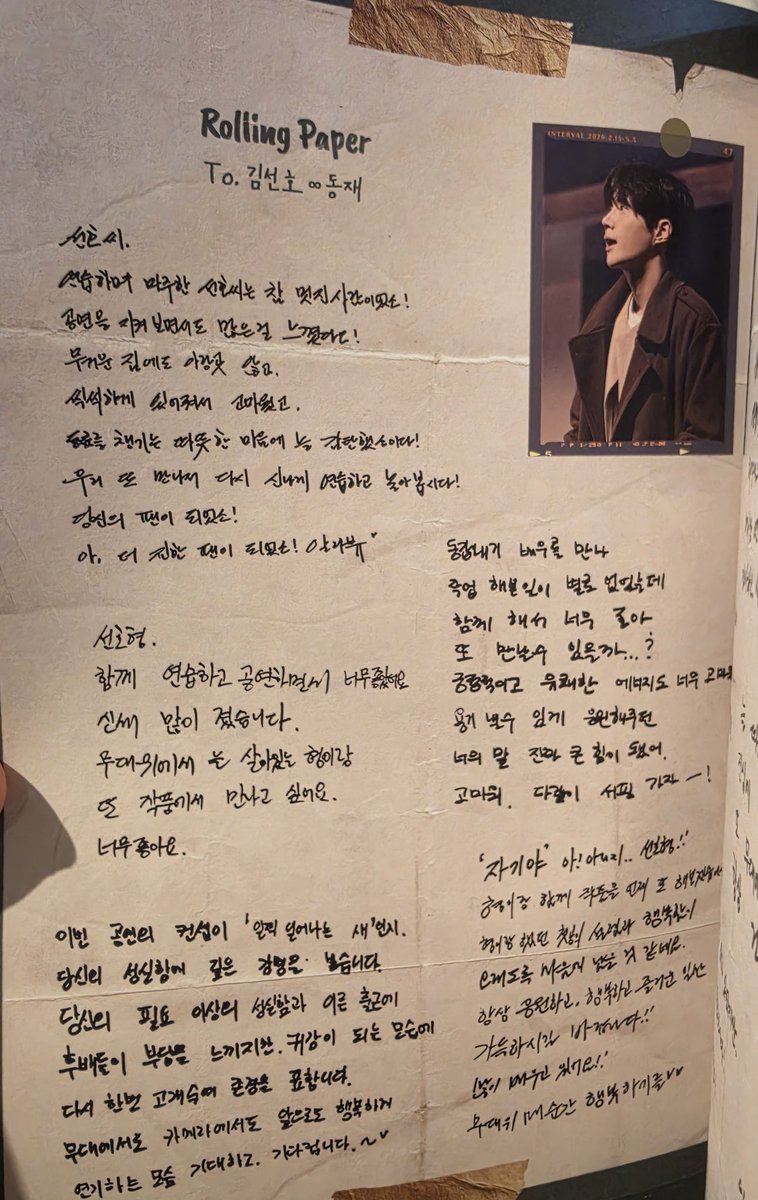 Rolling Paper
To. 김선호 ∞ 동재
INTERVAL 2026.2.15-5.3
47
선호씨.
연습하며 마주한 선호씨는 참 멋진사람이었소!
공연을 지켜보면서도 많은걸 느꼈다오!
무거운 짐에도 아랑곳 않고,
씩씩하게 있어줘서 고마웠고,
동료를 챙기는 따뜻한 마음에 늘 감탄했소이다!
우리 또 만나서 다시 신나게 연습하고 놀아봅시다!
당신의 팬이 되었소!
아, 더 진한 팬이 되었소! 알라뷰
5
선호형.
함께 연습하고 공연하면서 너무좋았어요
신세 많이 졌습니다.
무대위에서 는 살아있는 형이랑
또 작품에서 만나고 싶어요.
너무좋아요.
동갑내기 배우를 만나
작업 해본일이 별로 없었는데
함께 해서 너무 좋아
또 만날수 있을까...?
긍정적이고 유쾌한 에너지도 너무 고마워
용기 낼수 있게 응원해주던
너의 말 진짜 큰 힘이 됐어.
고마워. 다같이 서핑 가자 ㅡ!
이번 공연의 컨셉이 '일찍 일어나는 새'인지.
당신의 성실함에 깊은 감명을 받습니다.
당신의 필요 이상의 성실함과 이른 출근에
후배들이 부담을 느끼지만. 귀감이 되는 모습에
다시 한번 고개숙여 존경을 표합니다.
무대에서도 카메라에서도 앞으로도 행복하게
연기하는 모습 기대하고. 기다립니다. ~
'자기야' 아! 아니지.. 선호형!!
형이랑 함께 작품을 언제 또 해보겠습니까
형이랑 했던 첫 설렘과 행복함이
오래도록 남을 거 같네요.
항상 응원하고, 행복하고 즐거운 일만
가득하시길 바랍니다!!
많이 배우고 있어요!!
무대위 매순간 행복하기를